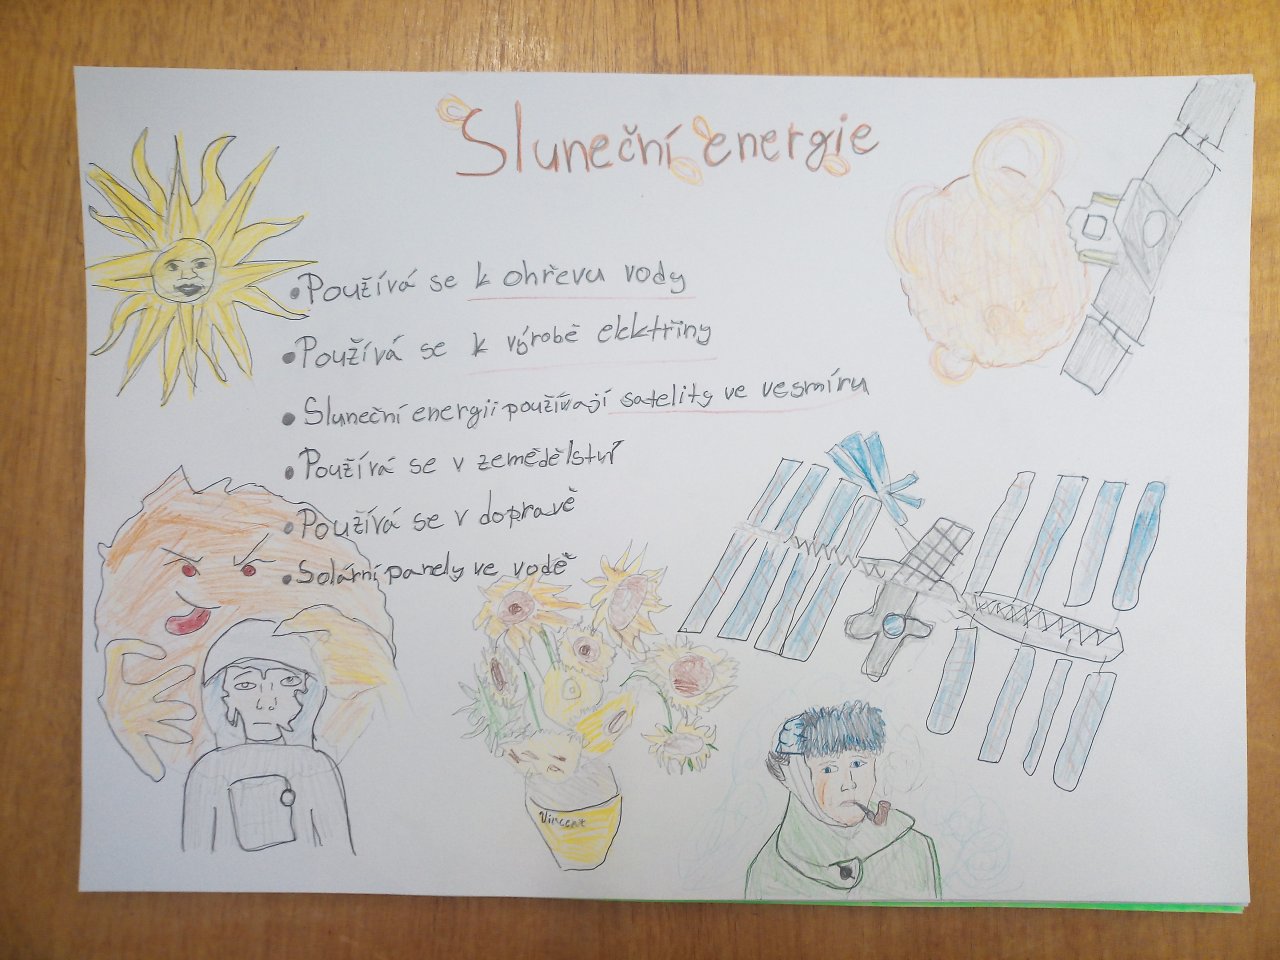 Sluneční energie
• Používá se k ohřevu vody
• Používá se k výrobě elektřiny
• Sluneční energii používají satelity ve vesmíru
• Používá se v zemědělství
• Používá se v dopravě
• Solární panely ve vodě
Vincent